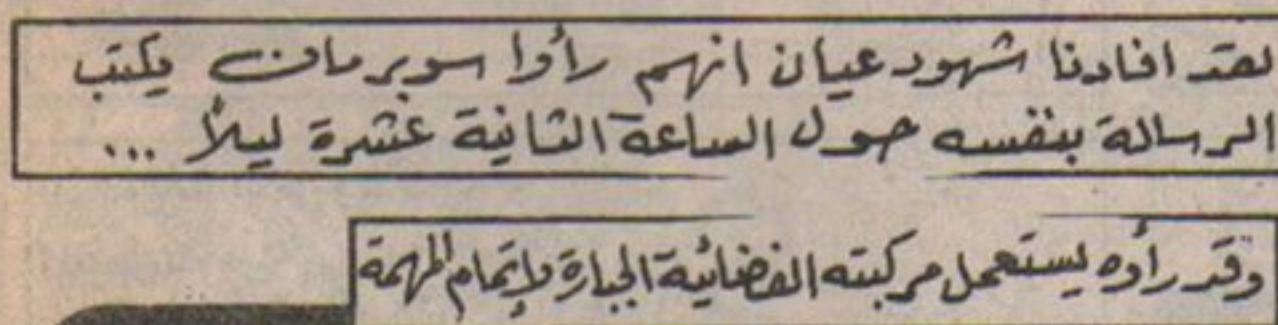 لقد افادنا شهود عيان انهم رأوا سوبرمان يكتب
الرسالة بنفسه حول الساعة الثانية عشرة ليلاً ...
وقد رأوه يستعمل مركبته الفضائية الجبارة لإتمام المهمة